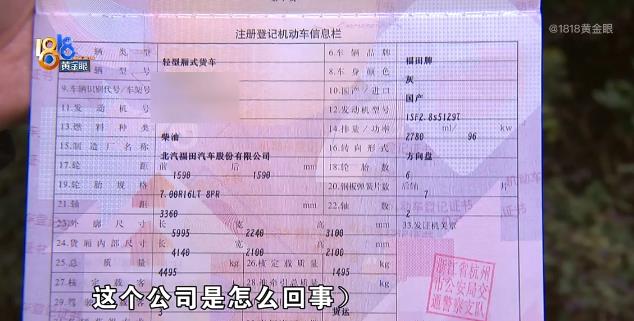 @1818黄金眼
1818
黄金眼
注册登记机动车信息栏
辆类型 轻型厢式货车 6.车辆品牌 福田牌
辆型号 8.车身颜色 灰
9.车辆识别代号/车架号 10.国产/进口 国产
11.发动机号 12.发动机型号 ISF2.8s5129T
13.燃料种类 柴油 14.排量/功率 2780 ml/ 96 kw
15.制造厂名称 北汽福田汽车股份有限公司 16.转向形式 方向盘
17.轮距 前 1590 后 1590 mm 18.轮胎数 6
19.轮胎规格 7.00R16LT 8PR 20.钢板弹簧片数 后轴 7 片
21.轴距 3360 mm 22.轴数 2
23.外廓尺寸 长 5995 宽 2240 高 3100 mm 33.发证机关章
24.货厢内部尺寸 长 4140 宽 2100 高 2100 mm
25.总质量 4495 kg 26.核定载质量 1495 kg
27.核定载客 28.准牵引总质量
29.驾 货运
浙江省杭州
市公安局交
通警察支队
这个公司是怎么回事）